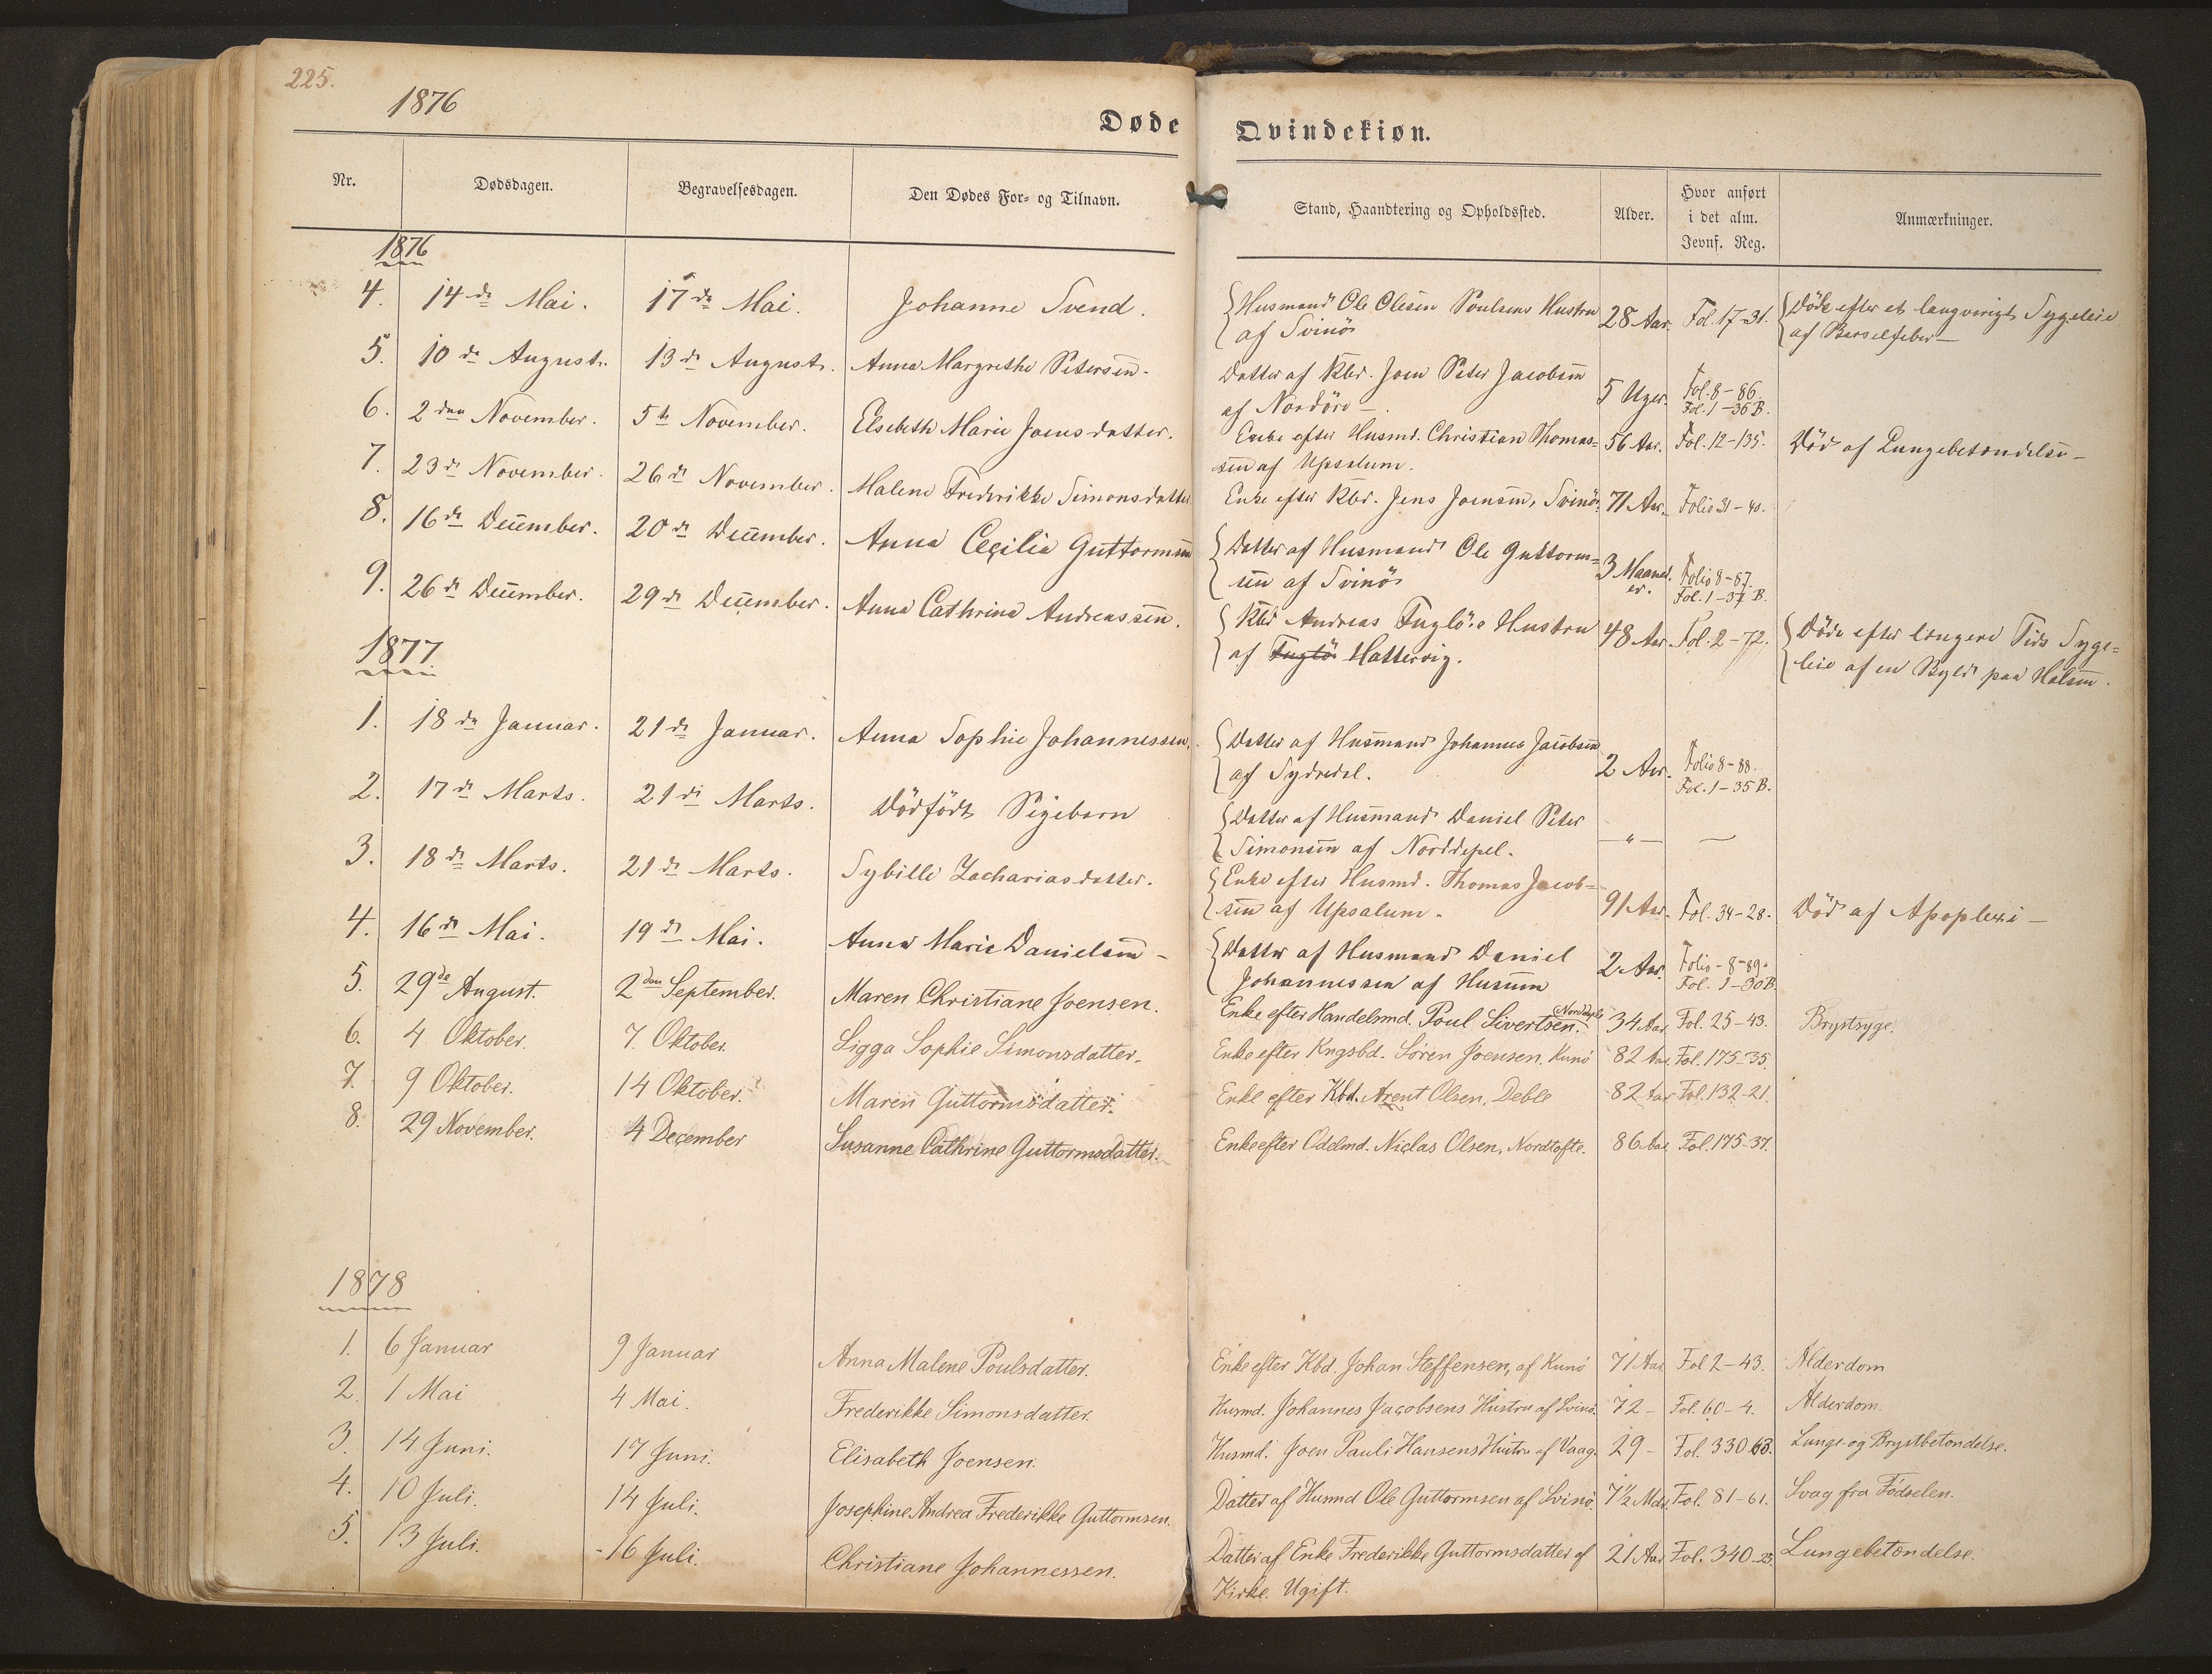 225.
1876
Døde Qvindekiøn.
Nr. Dødsdagen. Begravelsesdagen. Den Dødes For- og Tilnavn. Stand, Haandtering og Opholdssted. Alder. Hvor anført i det alm. Jevnf. Reg. Anmærkninger.
1876
4. 14de Mai. 17de Mai. Johanne Svend. Husmand Ole Olesen Poulsens Hustru 28 Aar. Fol. 17-31. Døde efter et langvarigt Sygeleie
af Svinö af Barselfeber—
5. 10de August. 13de August. Anna Margrethe Petersen. Datter af Kbd. Joen Peter Jacobsen 5 Uger. Fol. 8-86.
af Nordöre—. Fol. 1-36 B.
6. 2den November. 5te November. Elsebeth Marie Joensdatter. Enke efter Husmd. Christian Thomas= 56 Aar. Fol. 12-135. Död af Lungebetændelse—
sen af Upsalum.
7. 23de November. 26de November. Malene Frederikke Simonsdatter Enke efter Kbd. Jens Joensen, Svinö. 71 Aar. Folio 31-40.
8. 16de December. 20de December. Anna Cecilia Guttormsen Datter af Husmand Ole Guttorm= 3 Maaned. Folio 8-87.
sen af Svinö er. Fol. 1-37 B.
9. 26de December. 29de December. Anna Cathrine Andreassen. Kbd Andreas Fuglö's Hustru 48 Aar. Fol. 2-72. Döde efter længere Tids Syge=
af Fuglö Hattervig. leie af en Byld paa Halsen.
1877
1. 18de Januar. 21de Januar. Anna Sophie Johannessen. Datter af Husmand Johannes Jacobsen 2 Aar. Folio 8-88.
af Sydredal. Fol. 1-35 B.
2. 17de Marts. 21de Marts. Dödfödt Pigebarn Datter af Husmand Daniel Peter — " — —
Simonsen af Norddepel.
3. 18de Marts. 21de Marts. Sybille Zachariasdatter. Enke efter Husmd. Thomas Jacob=
sen af Upsalum. 91 Aar. Fol. 34-28. Död af Apoplexi—
4. 16de Mai. 19de Mai. Anna Marie Danielsen— Datter af Husmand Daniel 2 Aar. Folio-8-89.
Johannessen af Husum Fol. 1-30 B.
5. 29de August. 2den September. Maren Christiane Joensen. Enke efter Handelsmd. Poul Sivertsen. Norddepel 34 Aar. Fol. 25-43. Brystsyge.
6. 4 Oktober. 7. Oktober. Sigga Sophie Simonsdatter. Enke efter Kngsbd. Sören Joensen, Kunö 82 Aar. Fol. 175-35.
7. 9 Oktober. 14 Oktober. Maren Guttormsdatter. Enke efter Kbd. Arent Olsen, Deble 82 Aar Fol. 132-21.
8. 29 November. 4 December Susanne Cathrine Guttormsdatter. Enke efter Odelmd. Niclas Olsen, Nordtofte. 86 Aar. Fol. 175-37.
1878
1. 6 Januar 9 Januar Anna Malene Poulsdatter. Enke efter Kbd. Johan Steffensen, af Kunö 71 Aar Fol 2-43. Alderdom
2. 1 Mai 4 Mai. Frederikke Simonsdatter. Husmd. Johannes Jacobsens Hustru af Svinö. 72- Fol. 60-4. Alderdom.
3. 14 Juni. 17 Juni. Elisabeth Joensen. Husmd. Joen Pauli Hansens Hustru af Vaag. 29- Fol. 330 63. Lunge- og Brystbetændelse.
4. 10 Juli. 14 Juli. Josephine Andrea Frederikke Guttormsen. Datter af Husmd Ole Guttormsen af Svinö. 7½ Mdr. Fol. 81-61. Svag fra Födselen.
5. 13 Juli. 16 Juli. Christiane Johannessen. Datter af Enke Frederikke Guttormsdatter af 21 Aar Fol. 340-25. Lungebetændelse.
Kirke. Ugift.